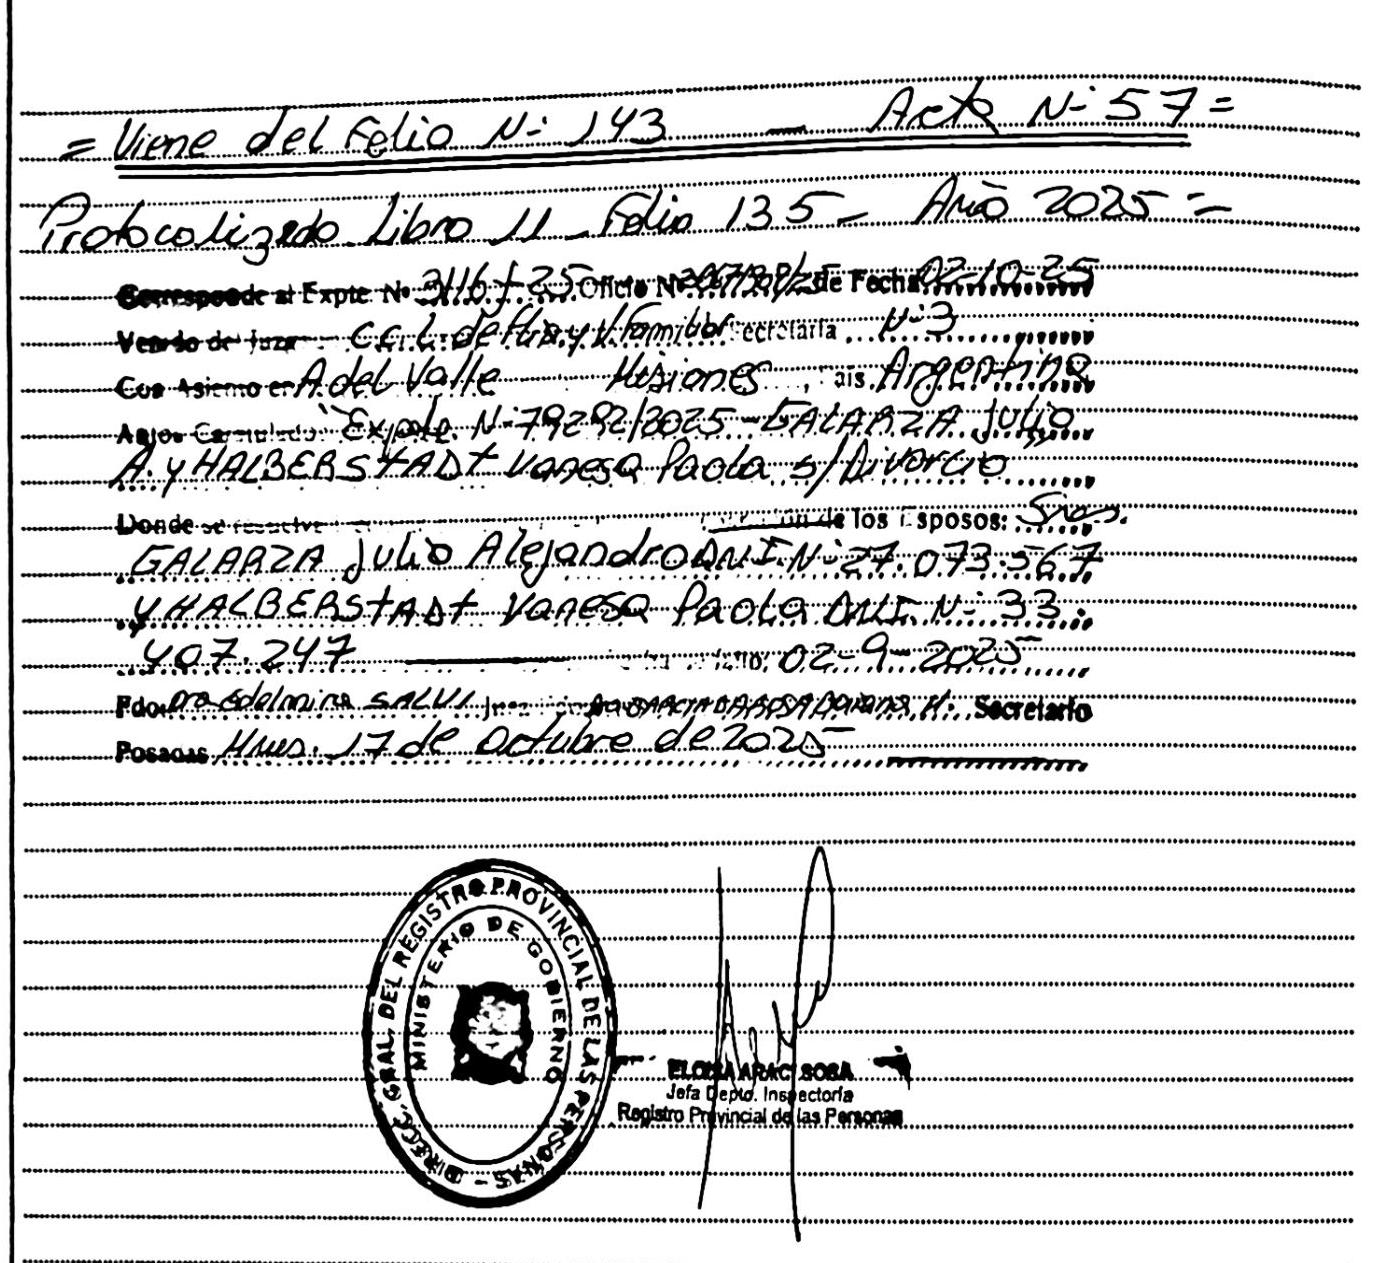 = Viene del Folio N- 143 — Acta N- 57 =
Protocolizado Libro 11 - Folio 135 - Año 2025 =
Corresponde al Expte. Nº 3116J-25 Oficio Nº de Fecha 02-10-25
Venido de Juzg C.C.L. de Flia y V. Familiar Secretaría N-3
Con Asiento en A del Valle Misiones, País Argentina
Autos Caratulados: "Expte. N-79292/2025 - GALARZA Julio
A. y HALBERSTADT Vanesa Paola s/Divorcio"
Donde se resuelve de los Esposos: Sres.
GALARZA Julio Alejandro DNI. N- 27.073.567
y HALBERSTADT Vanesa Paola DNI. N- 33.
407.247 02-9-2025
Fdo. Dra Edelmira SALVI Juez DA ROSA H. Secretario
Posadas Mnes. 17 de Octubre de 2025
DIRECC. GRAL. DEL REGISTRO PROVINCIAL DE LAS PERSONAS -
MINISTERIO DE GOBIERNO
SOSA
Jefa Depto. Inspectoría
Registro Provincial de las Personas